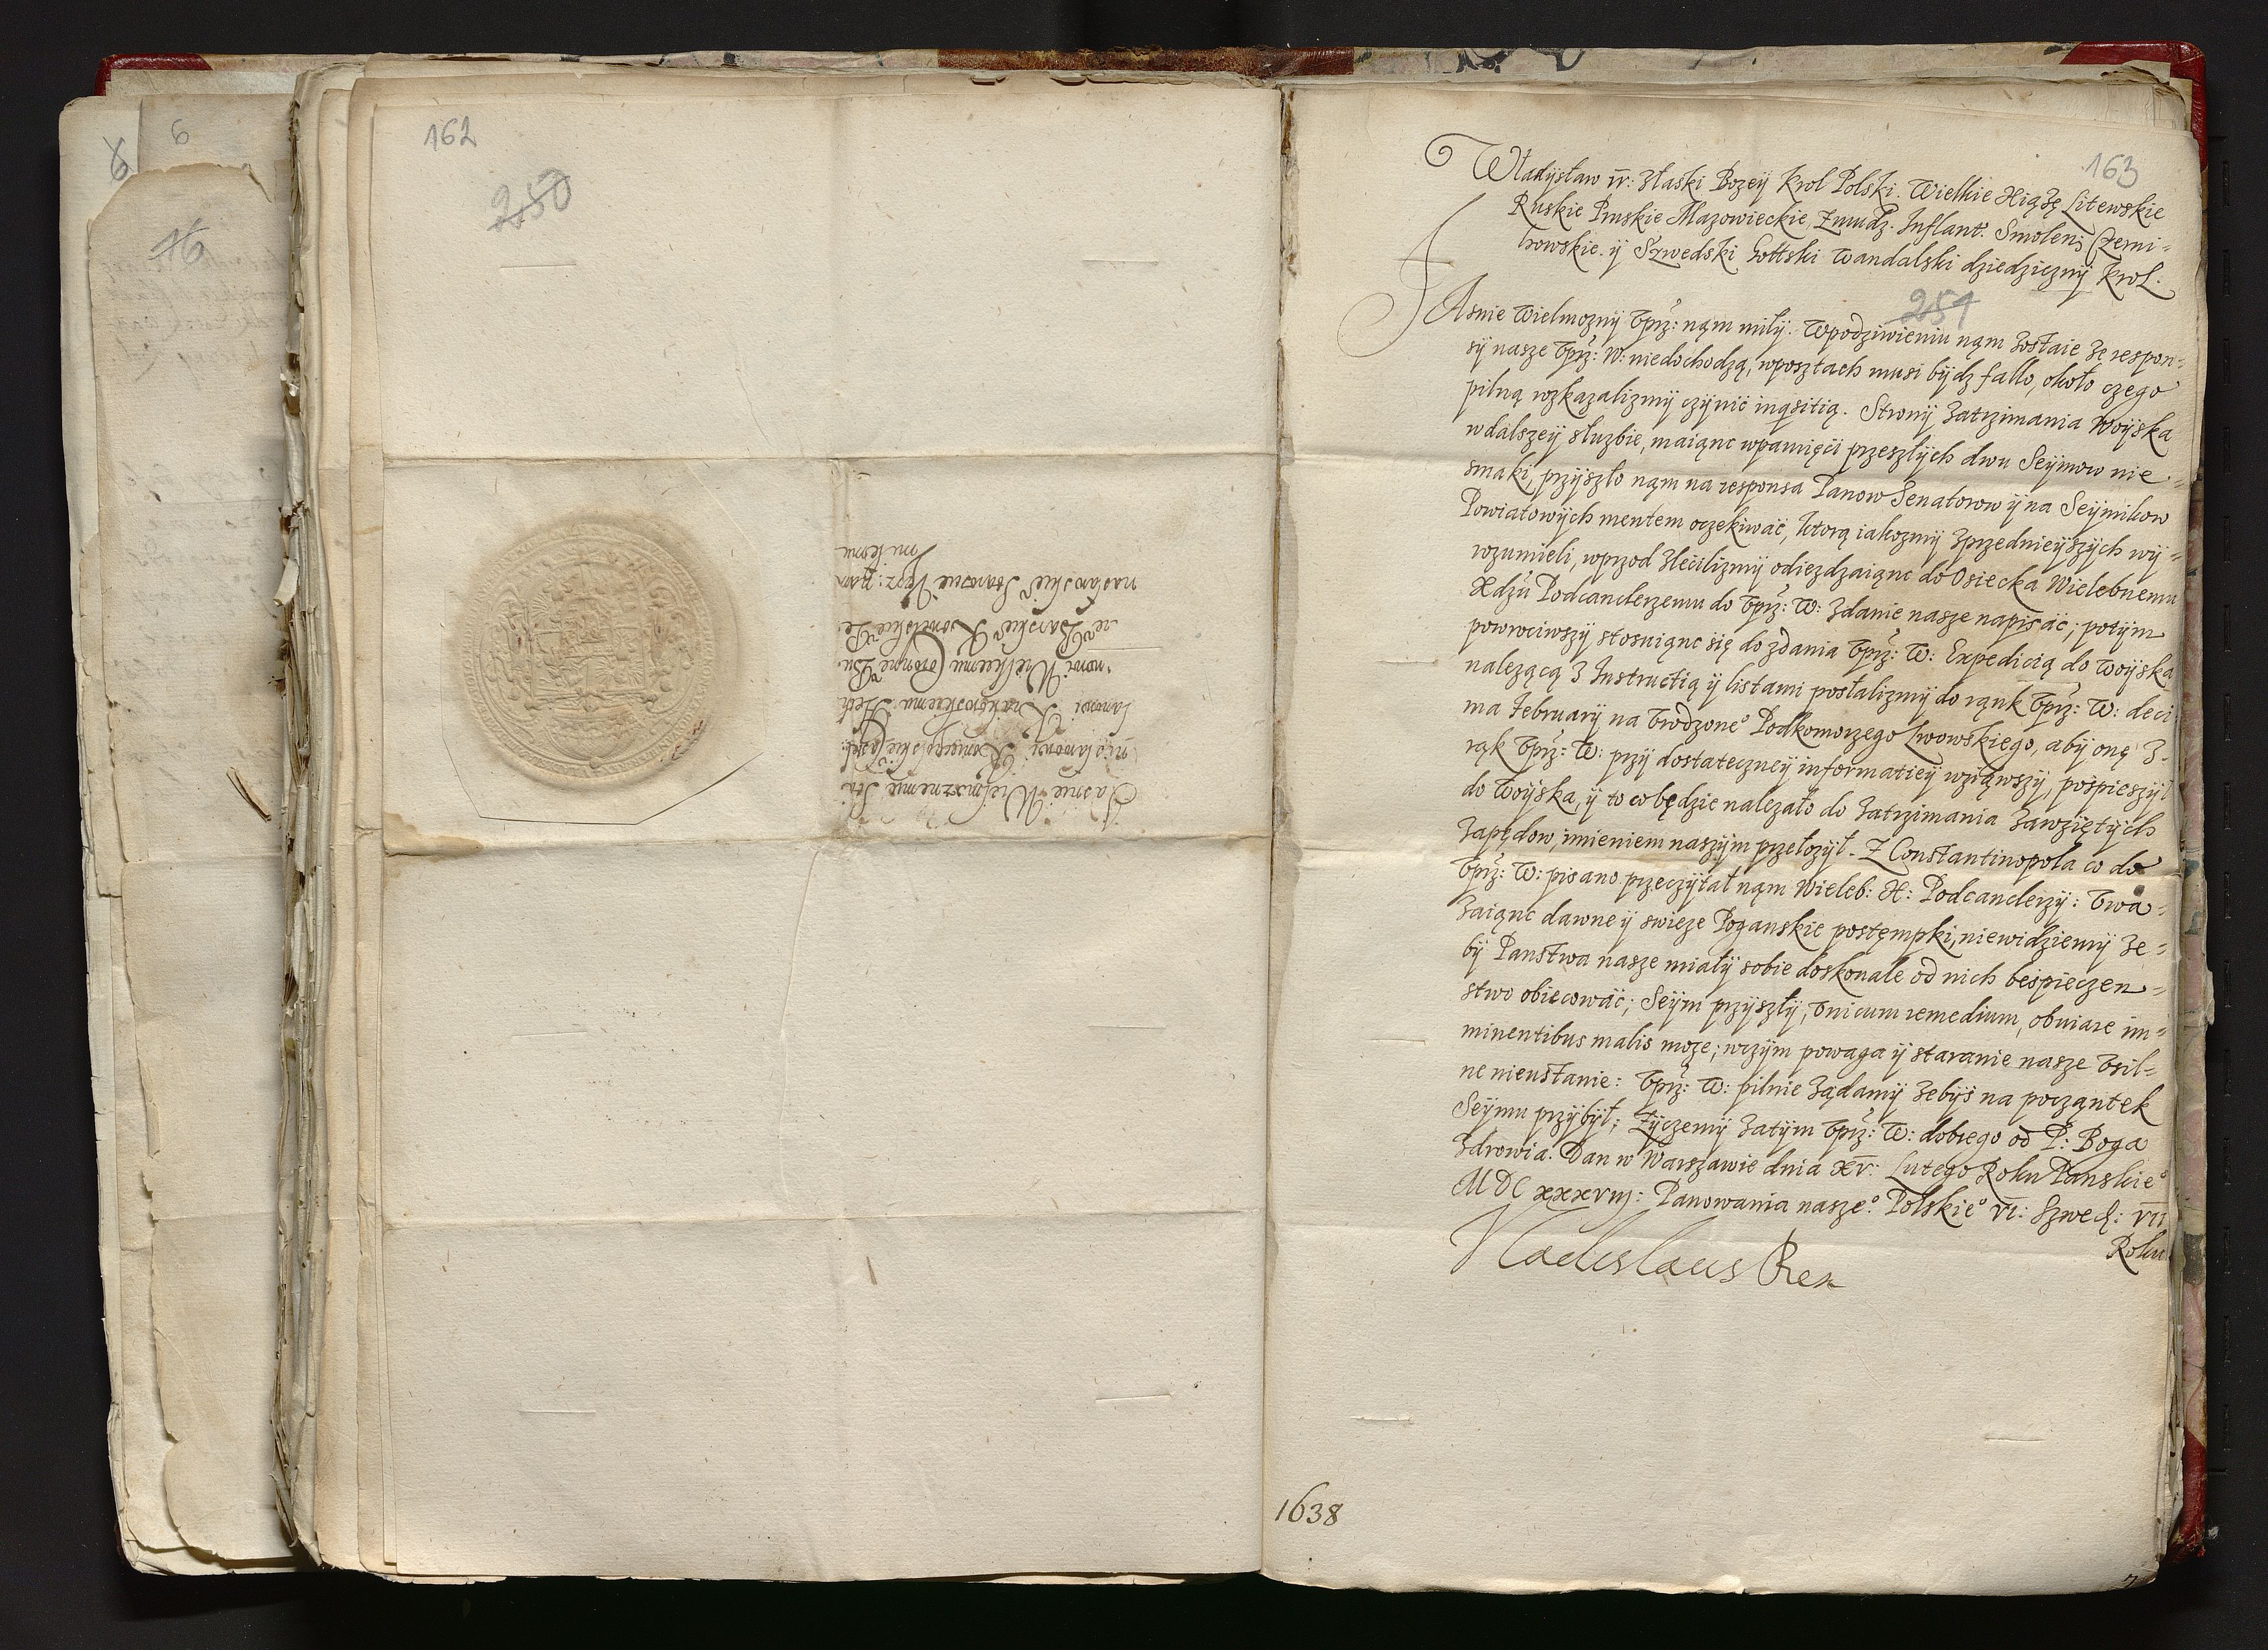 162
250
6
6
16
Jasnie Wielmoznemu Sta
nisławowi Koniecpolskie° Caszt:
lanowi Krakowskiemu Het
manowi Wielkiemu Coronne Bu.
re Barskie° Kowelskie Pe
reasławskie° Staroscie Uprz: nam
miłemu
163
Władysław IV: Złaski Bozey Krol Polski. Wielkie Xiążę Litewskie
Ruskie Pruskie Mazowieckie, Zmudz. Inflant. Smolens Czerni=
howskie. ÿ Szwedski Gottski Wandalski dziedzicznÿ Krol.
251
JAsnie Wielmoznÿ Vprz: nąm miłÿ. Wpodziwieniu nąm zostaie że respon=
sÿ nasze Vprz: W: niedochodzą, wposztach musi bÿdz fallo, około czego
pilną rozkazalizmÿ czÿnić inqsitią. Stronÿ Zatrzimania Woÿska
wdalszeÿ słuzbie, maiąnc wpamięci przeszłÿch dwu Seÿmow nie=
smaki, przÿszło nąm na responsa Panow Senatorow ÿ na Seÿmikow
Powiatowÿch mentem oczekiwać, ktorą iakozmÿ zprzednieÿszÿch wÿ=
rozumieli, wprzod zlecilizmÿ odiezdzaiąnc do Osiecka Wielebnemu
Xdzu Podcanclerzemu do Vprz: W: zdanie nasze napisać; potÿm
powrociwszÿ stosuiąnc się do zdania Vprz: W: Expedicią do Woÿska
nalezącą z Instructią ÿ listami posłalizmÿ do rąnk Vprz: W: deci
ma Februarÿ na Vrodzone° Podkomorzego Lwowskiego, abÿ onę z
rąk Vprz: W: przÿ dostateczneÿ informatieÿ wziąwszÿ, pośpieszÿł
do Woÿska, ÿ to co będzie nalezało do Zatrzimania Zawziętÿch
Zapędow, imieniem naszÿm przełozÿł. Z Constantinopola co do
Vprz: W: pisano przeczÿtał nąm Wieleb: X: Podcanclerzÿ: Vwa=
zaiąnc dawne ÿ swieze Poganskie postęmpki, niewidziemÿ ze=
bÿ Panstwa nasze miałÿ sobie doskonałe od nich bespieczen=
stwo obiecować; Seÿm przÿszłÿ, vnicum remedium, obuiare im=
minentibus malis moze; wczÿm powaga ÿ staranie nasze vsil=
ne nieustanie: Vprz: W: pilnie ządamÿ zebÿs na począntek
Seÿmu przÿbÿł; Zÿczemÿ zatÿm Vprz: W: dobrego od P: Boga
Zdrowia. Dan w Warszawie dnia XV: Lutego Roku Panskie°
MDCXXXVIIJ: Panowania nasze°. Polskie° VI: Szwedz: VII
Roku
Vladislaus Rex
1638